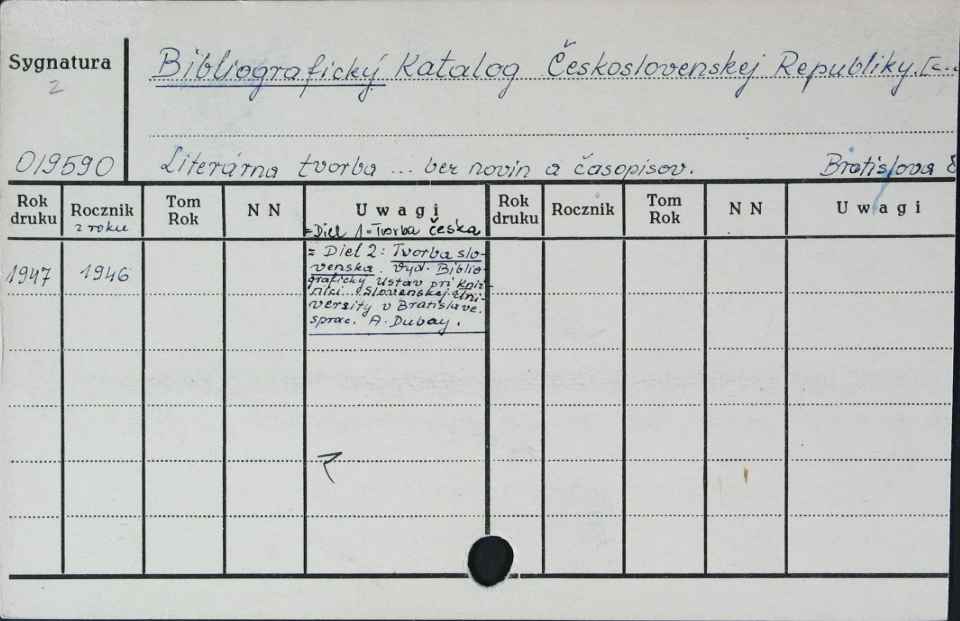 Sygnatura
2
Bibliografický Katalog Československej Republiky.
019590
Literárna tvorba ... bez novin a časopisov. Bratislava
Rok druku Rocznik z roku Tom Rok N N Uwagi Rok druku Rocznik Tom Rok N N Uwagi
= Diel 1 = Tvorba česka
1947 1946
= Diel 2: Tvorba slo-
venska. Vyd. Biblio-
grafický Ustav pri Kniž-
nici Slovenskej Uni-
versity v Bratislave.
sprac. A. Dubay.